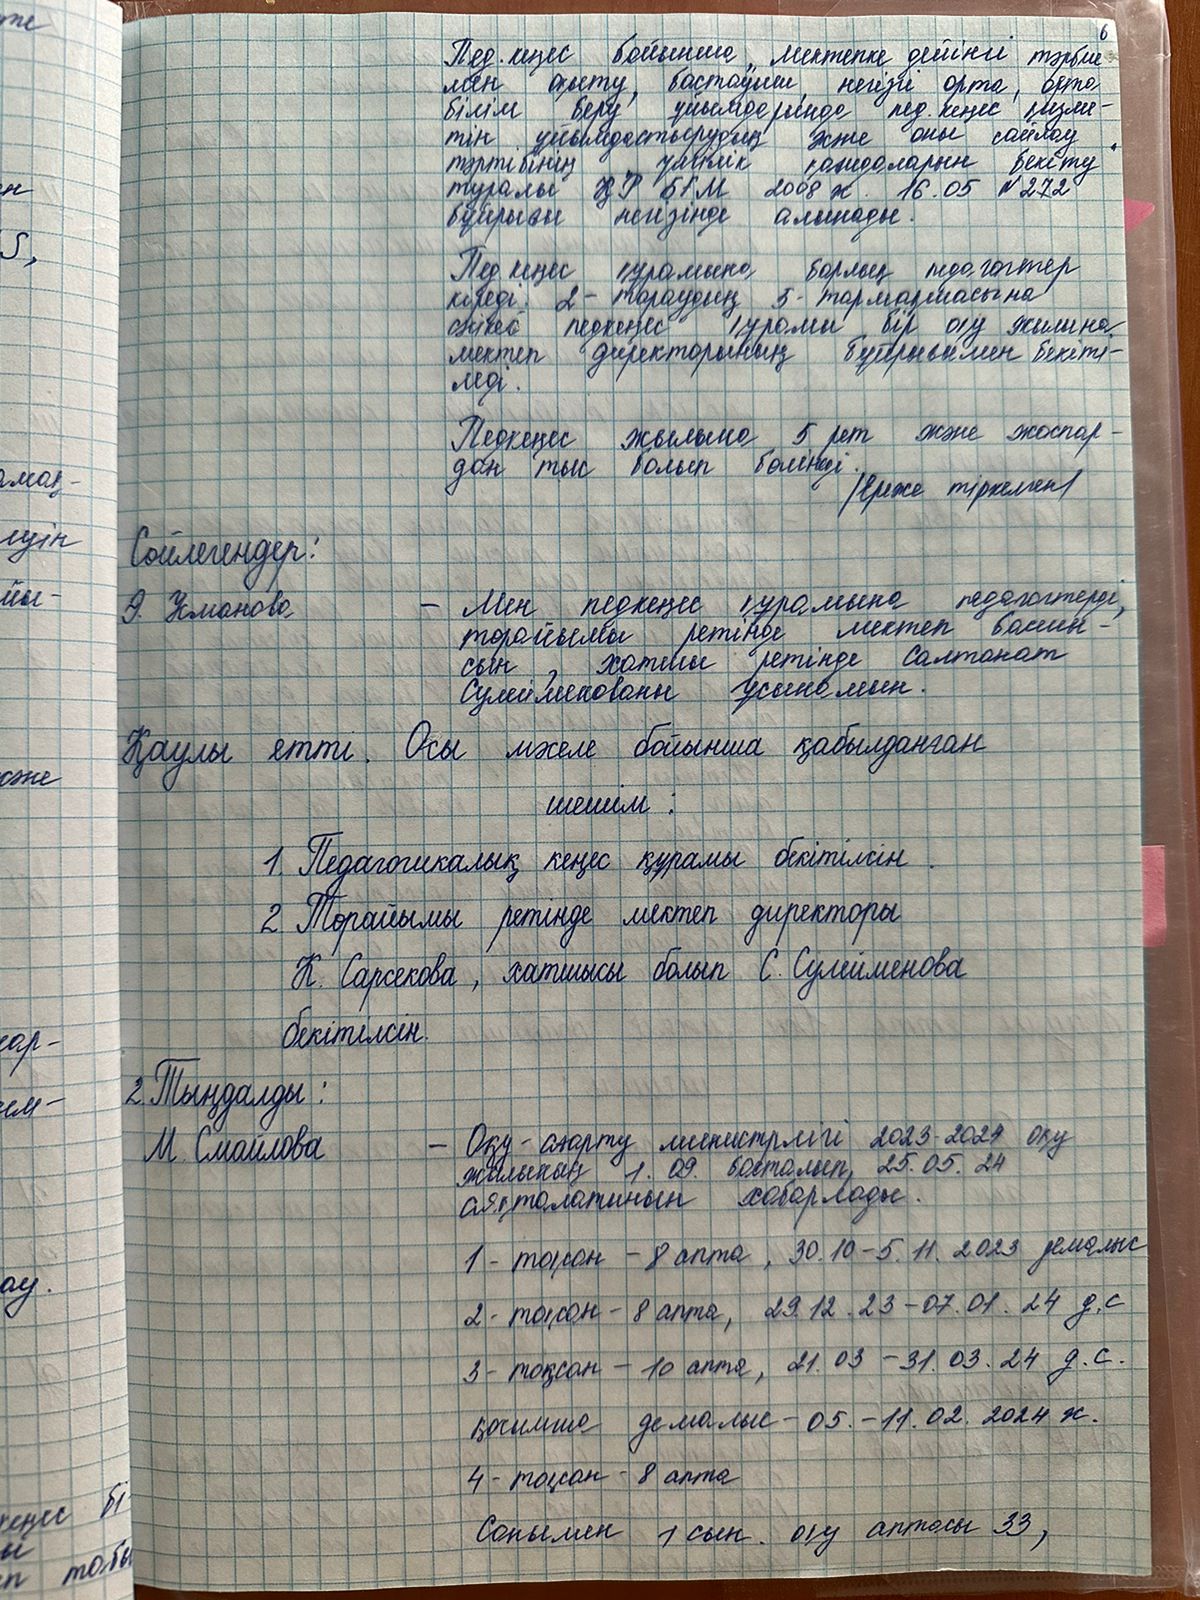 6
Пед.кеңес бойынша „ мектепке дейінгі тәрбие
мен оқыту, бастауыш, негізгі орта, орта
білім беру ұйымдарында пед.кеңес қызме-
тін ұйымдастырудың және оны сайлау
тәртібінің үлгілік қағидаларын бекіту"
туралы ҚР БҒМ 2008 ж. 16.05 №272
бұйрығы негізінде алынады.
Пед.кеңес құрамына барлық педагогтер
кіреді. 2-тараудың 5-тармақшасына
сәйкес педкеңес құрамы бір оқу жылына
мектеп директорының бұйрығымен бекіті-
леді.
Педкеңес жылына 5 рет және жоспар-
дан тыс болып бөлінеді.
/Ереже тіркелген/
Сөйлегендер:
Э. Усманова – Мен педкеңес құрамына педагогтерді,
төрайымы ретінде мектеп басшы-
сын, хатшы ретінде Салтанат
Сулейменованы ұсынамын.
Қаулы етті. Осы мәселе бойынша қабылданған
шешім:
1. Педагогикалық кеңес құрамы бекітілсін.
2. Төрайымы ретінде мектеп директоры
К. Сарсекова, хатшысы болып С. Сулейменова
бекітілсін.
2. Тыңдалды:
М. Смайлова – Оқу-ағарту министрлігі 2023-2024 оқу
жылының 1.09. басталып, 25.05.24
аяқталатынын хабарлады.
1-тоқсан – 8 апта, 30.10-5.11.2023 демалыс
2-тоқсан – 8 апта, 29.12.23-07.01.24 д.с
3-тоқсан – 10 апта, 21.03-31.03.24 д.с.
қосымша демалыс – 05.-11.02.2024 ж.
4-тоқсан – 8 апта
Сонымен 1 сын. оқу аптасы 33,